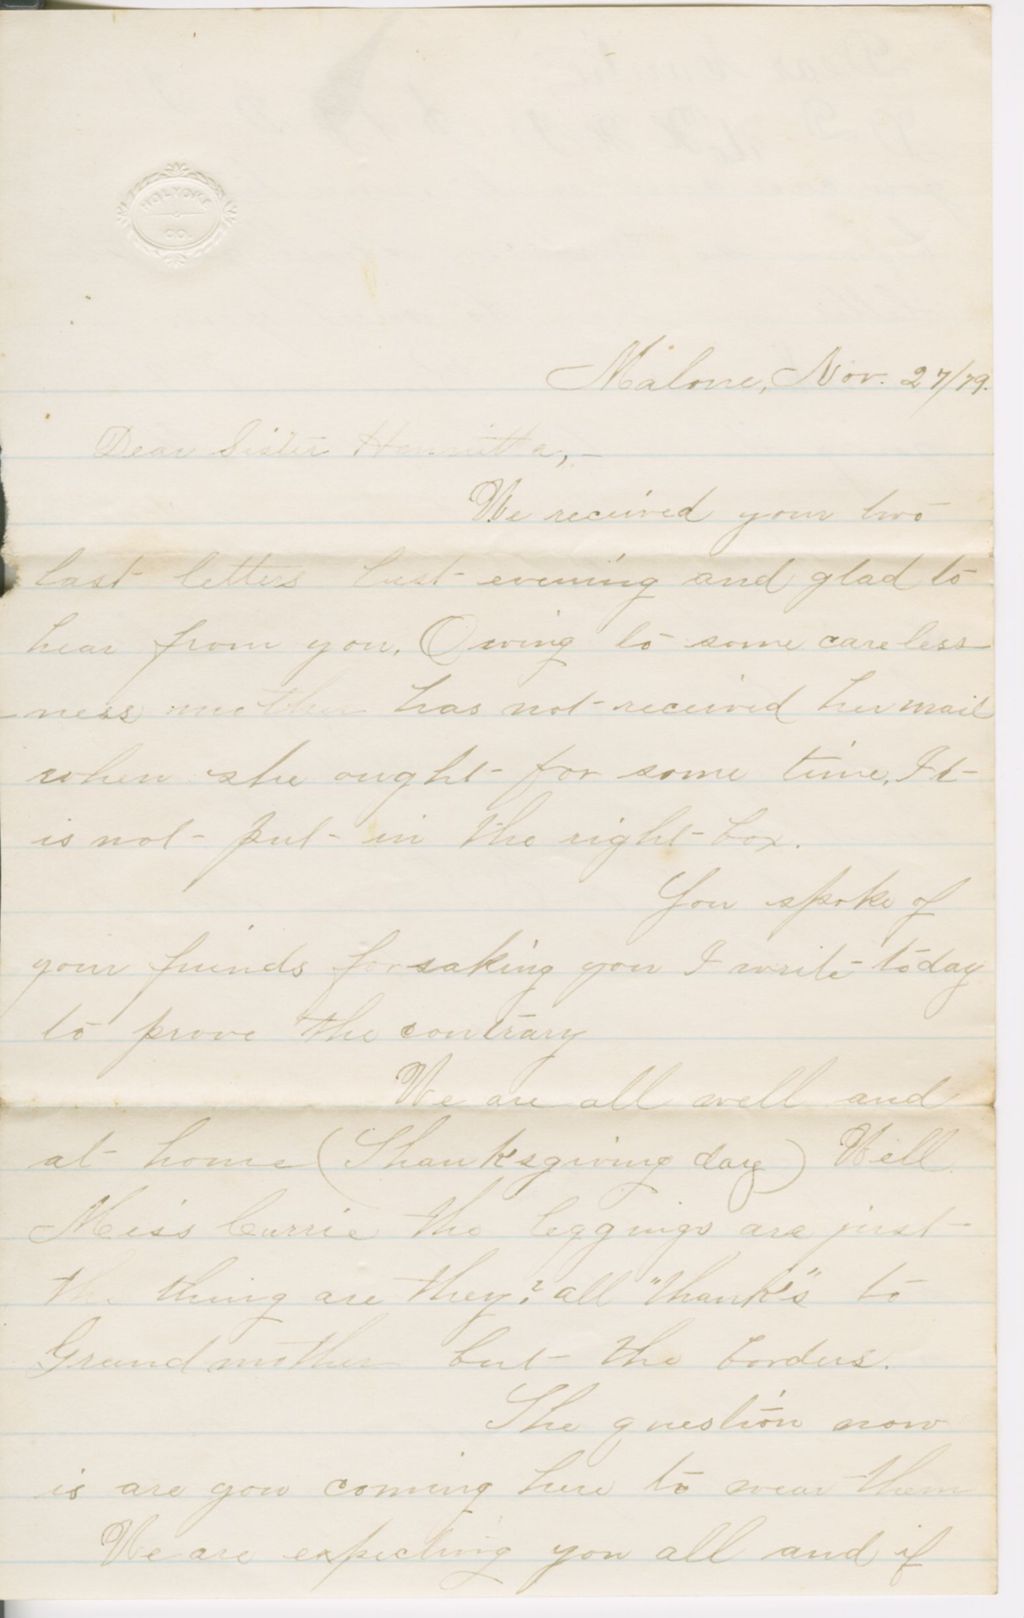 HOLYOKE
&
CO.
Malone, Nov. 27/79.
Dear Sister Henrietta,-
We received your two
last letters last evening and glad to
hear from you. Owing to some careless-
-ness mother has not received her mail
when she ought for some time. It
is not put in the right box.
You spoke of
your friends forsaking you I write today
to prove the contrary
We are all well and
at home (Thanksgiving day) Well
Miss Carrie the leggings are just
the thing are they? all "thank's" to
Grandmother but the borders.
The question now
is are you coming here to wear them
We are expecting you all and if